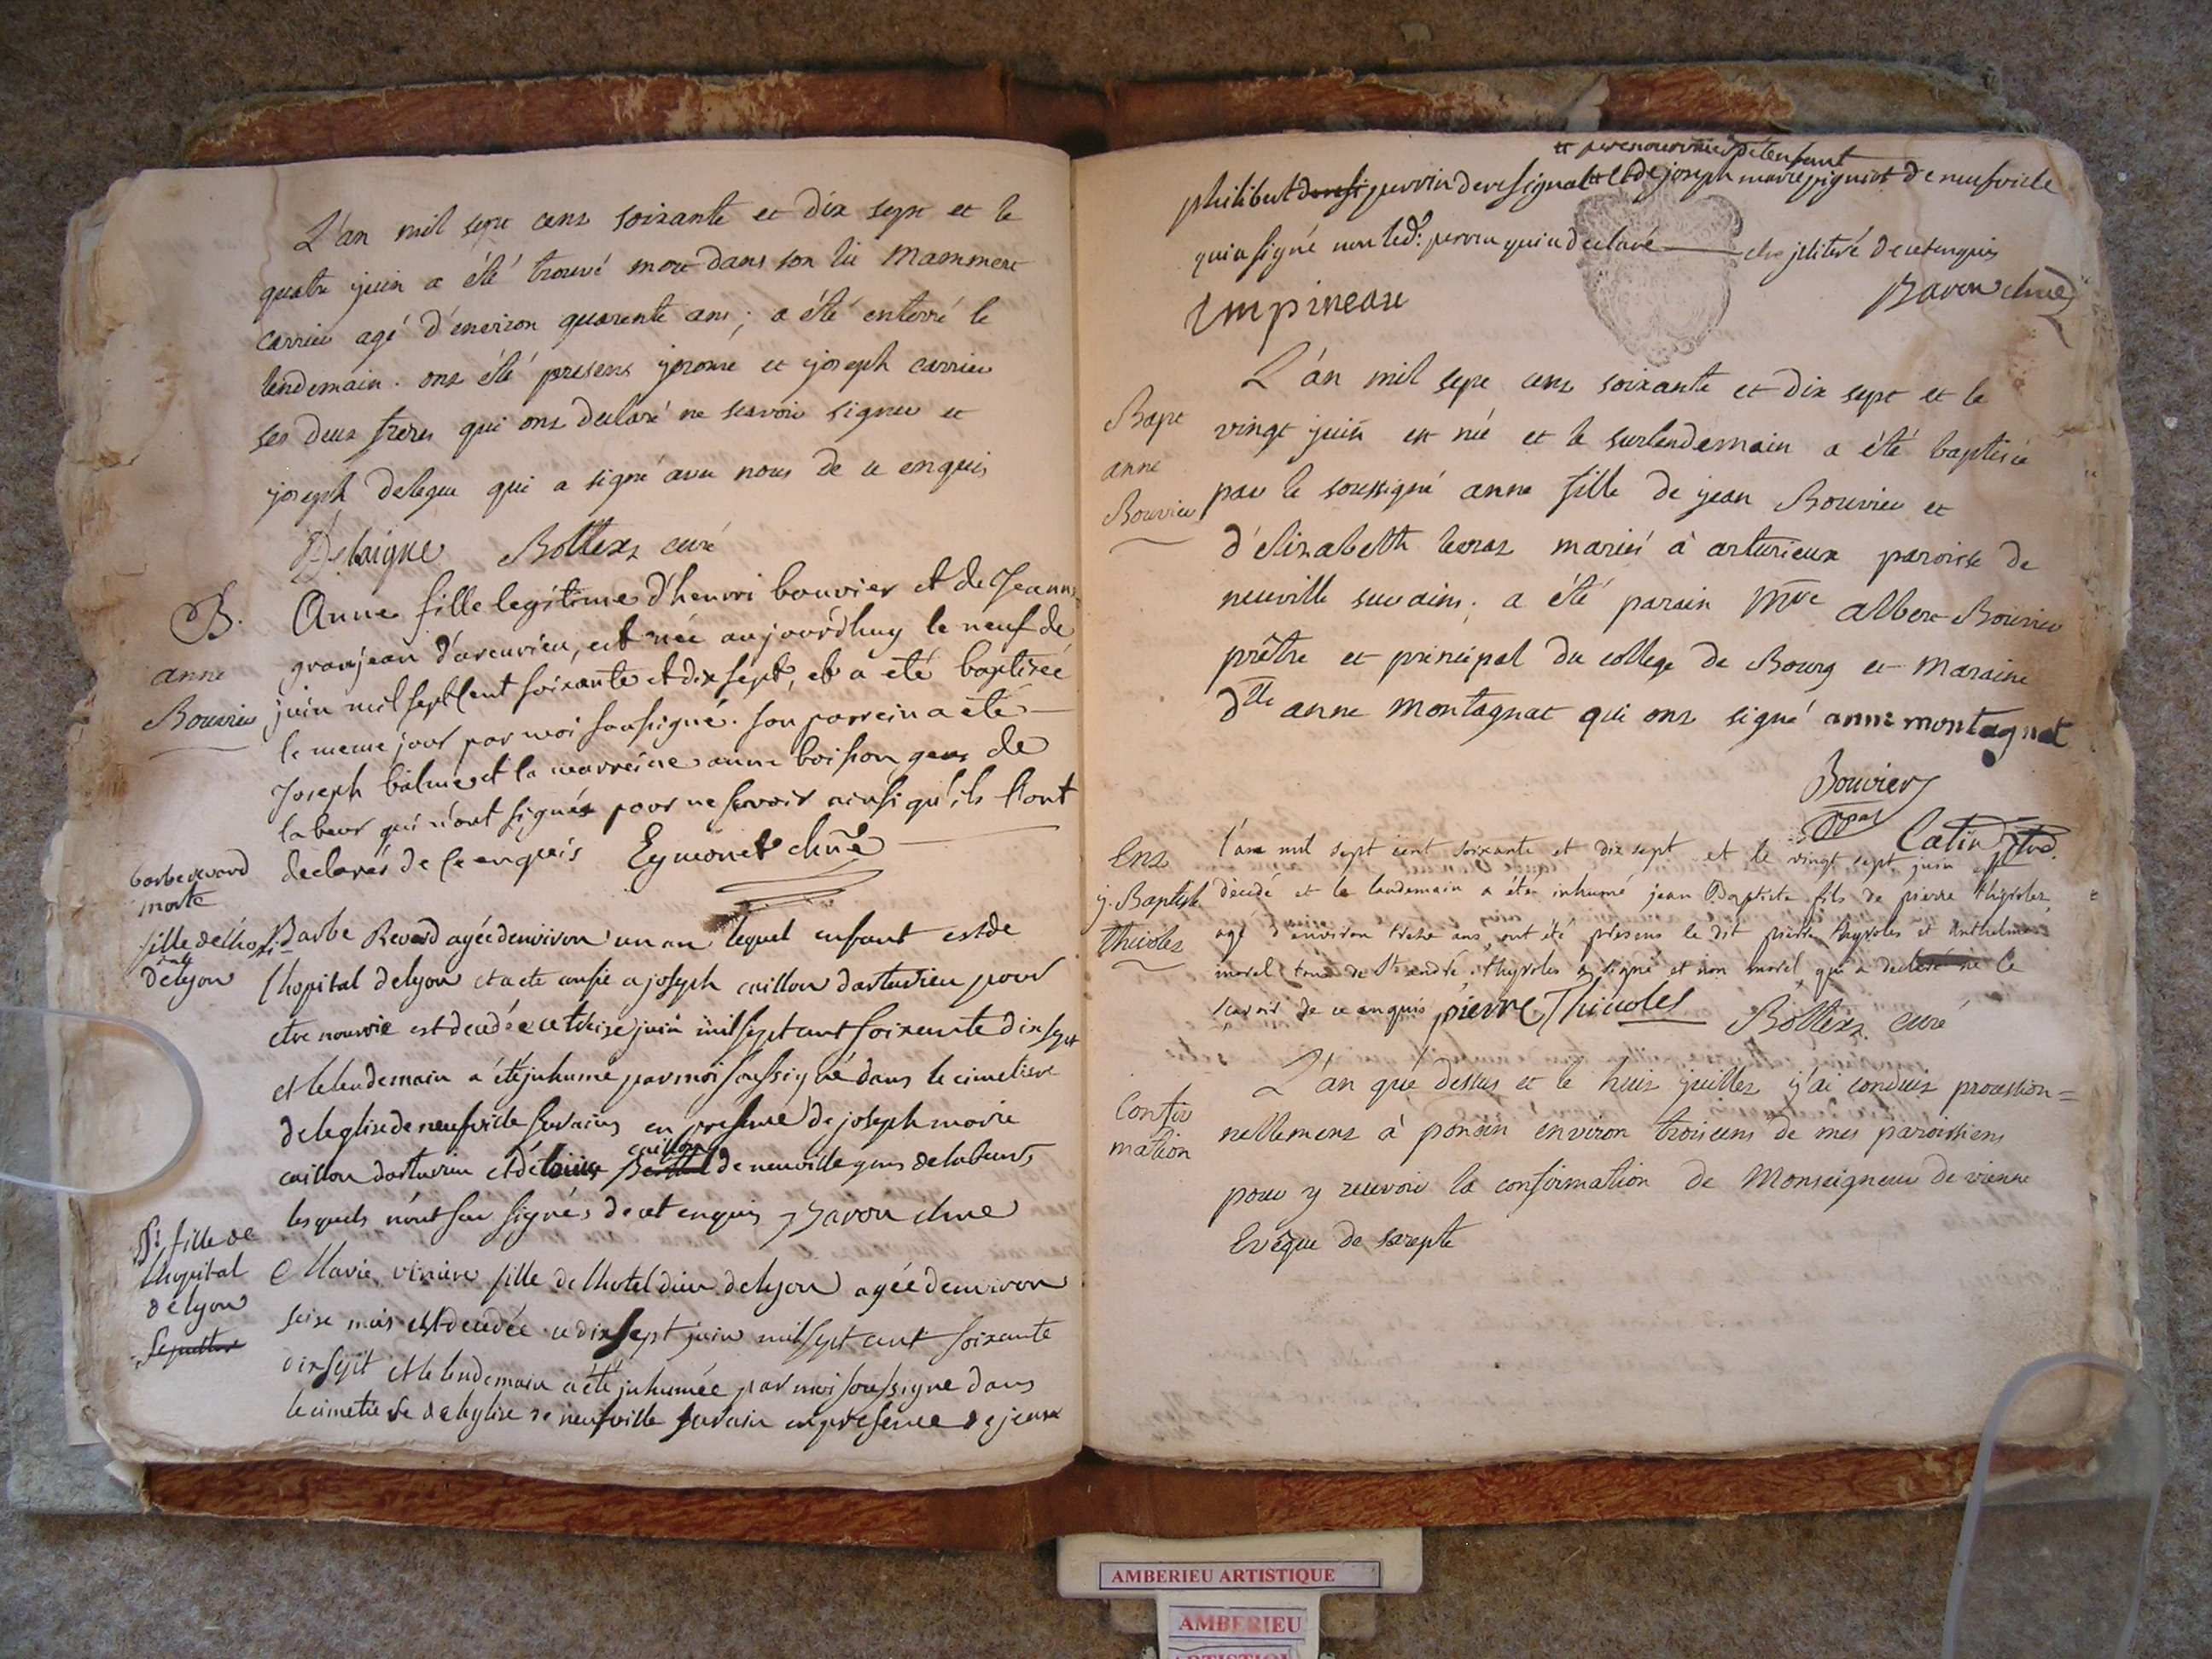 L'an mil sept cens soixante et dix sept et le
quatre juin a été trouvé mort dans son lit Mammert
carrier agé d'environ quarente ans; a été enterré le
lendemain. ont été presens jerome et joseph carrier
ses deux freres qui ont declaré ne scavoir signer et
joseph delegue qui a signé avec nous de ce enquis
Delaigue Bottex curé
B.
anne
Bouvier
Anne fille legitime d'henri bouvier et de Jeanne
granjean d'arturieu, est née aujourd'huy le neuf de
juin mil sept cent soixante et dix sept, et a eté baptisée
le meme jour par moi soussigné. son parrein a eté
Joseph balme et la marreine anne boisson gens de
labeur qui n'ont signés pour ne scavoir ainsi qu'ils l'ont
declarés de ce enquis Eymonet
barbe revard
morte
fille de l'hopi
tal
de lyon
Barbe Revard agée denviron un an lequel enfant est de
l'hopital de lyon et a ete confié a joseph caillon darturieu pour
etre nourrie est decedée ce treise juin mil sept cent soixante dix sept
et le lendemain a été inhumé par moi soussigné dans le cimetiere
de leglise de neufville sur ains en presence de joseph marie
caillon
caillon darturieu et de louis de neuville gens de labeurs
lesquels n'ont su signés de cet enquis
Sr fille de
l'hopital
de lyon
Marie viniere fille de l'hotel dieu de lyon agée denviron
seise mois est decedée ce dix sept juin mil sept cent soixante
dix sept et le lendemain a été inhumée par moi soussigne dans
le cimetiere de leglise de neufville sur ain en presence de jean
et pere nourricier de l'enfant
philibert perrin de resignal et de joseph marie pignier de neufville
qui a signé non led. perrin qui a declaré etre illiteré de cet enquis

Bapt
anne
Bouvier
L'an mil sept cens soixante et dix sept et le
vingt juin est né et le surlendemain a été baptisée
par le soussigné anne fille de jean Bouvier et
d'elizabeth leoraz mariés à arturieux paroisse de
neuville sur ains. a été parain Mre albert Bouvier
prêtre et principal du college de Bourg et maraine
dlle anne montagnat qui ont signé anne montagnat
Bouvier
ppal
Catin
Ent
j. Baptiste
thivolet
l'an mil sept cent soixante et dix sept et le vingt sept juin est
decedé et le landemain a été inhumé jean Baptiste fils de pierre thyvolet
agé d'environ treise ans ont été présens le dit pierre thyvolet et anthelme
morel tous de St andré. thyvolet a signé et non morel qui a declaré ne le
scavoir de ce enquis pierre Thivolet Bottex curé
Confir
mation
L'an que dessus et le huit juillet j'ai conduit procession=
nellement à poncin environ trois cens de mes paroissiens
pour y recevoir la confirmation de Monseigneur de vienne
Evêque de sarepte
AMBERIEU ARTISTIQUE
AMBERIEU
ARTISTIQUE